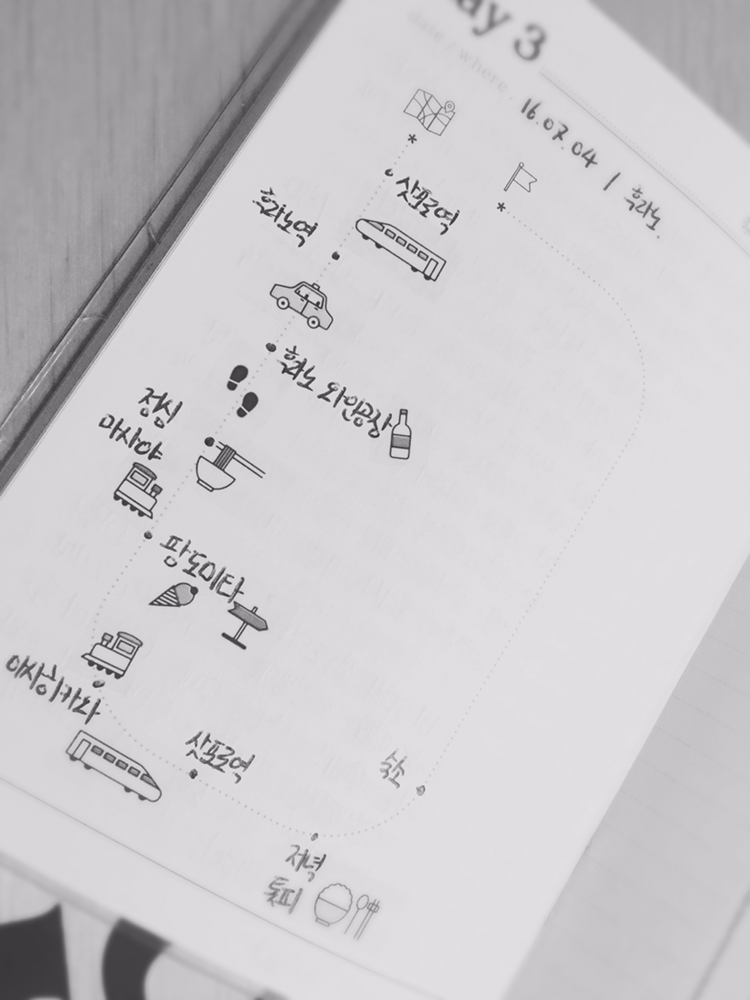 ay 3
date / where.
16.07.04 / 후라노.
삿포로역
후라노역
후라노 와인공장
점심
마사야
팜도미타
아사히카와
삿포로역
숙소
저녁
돗피